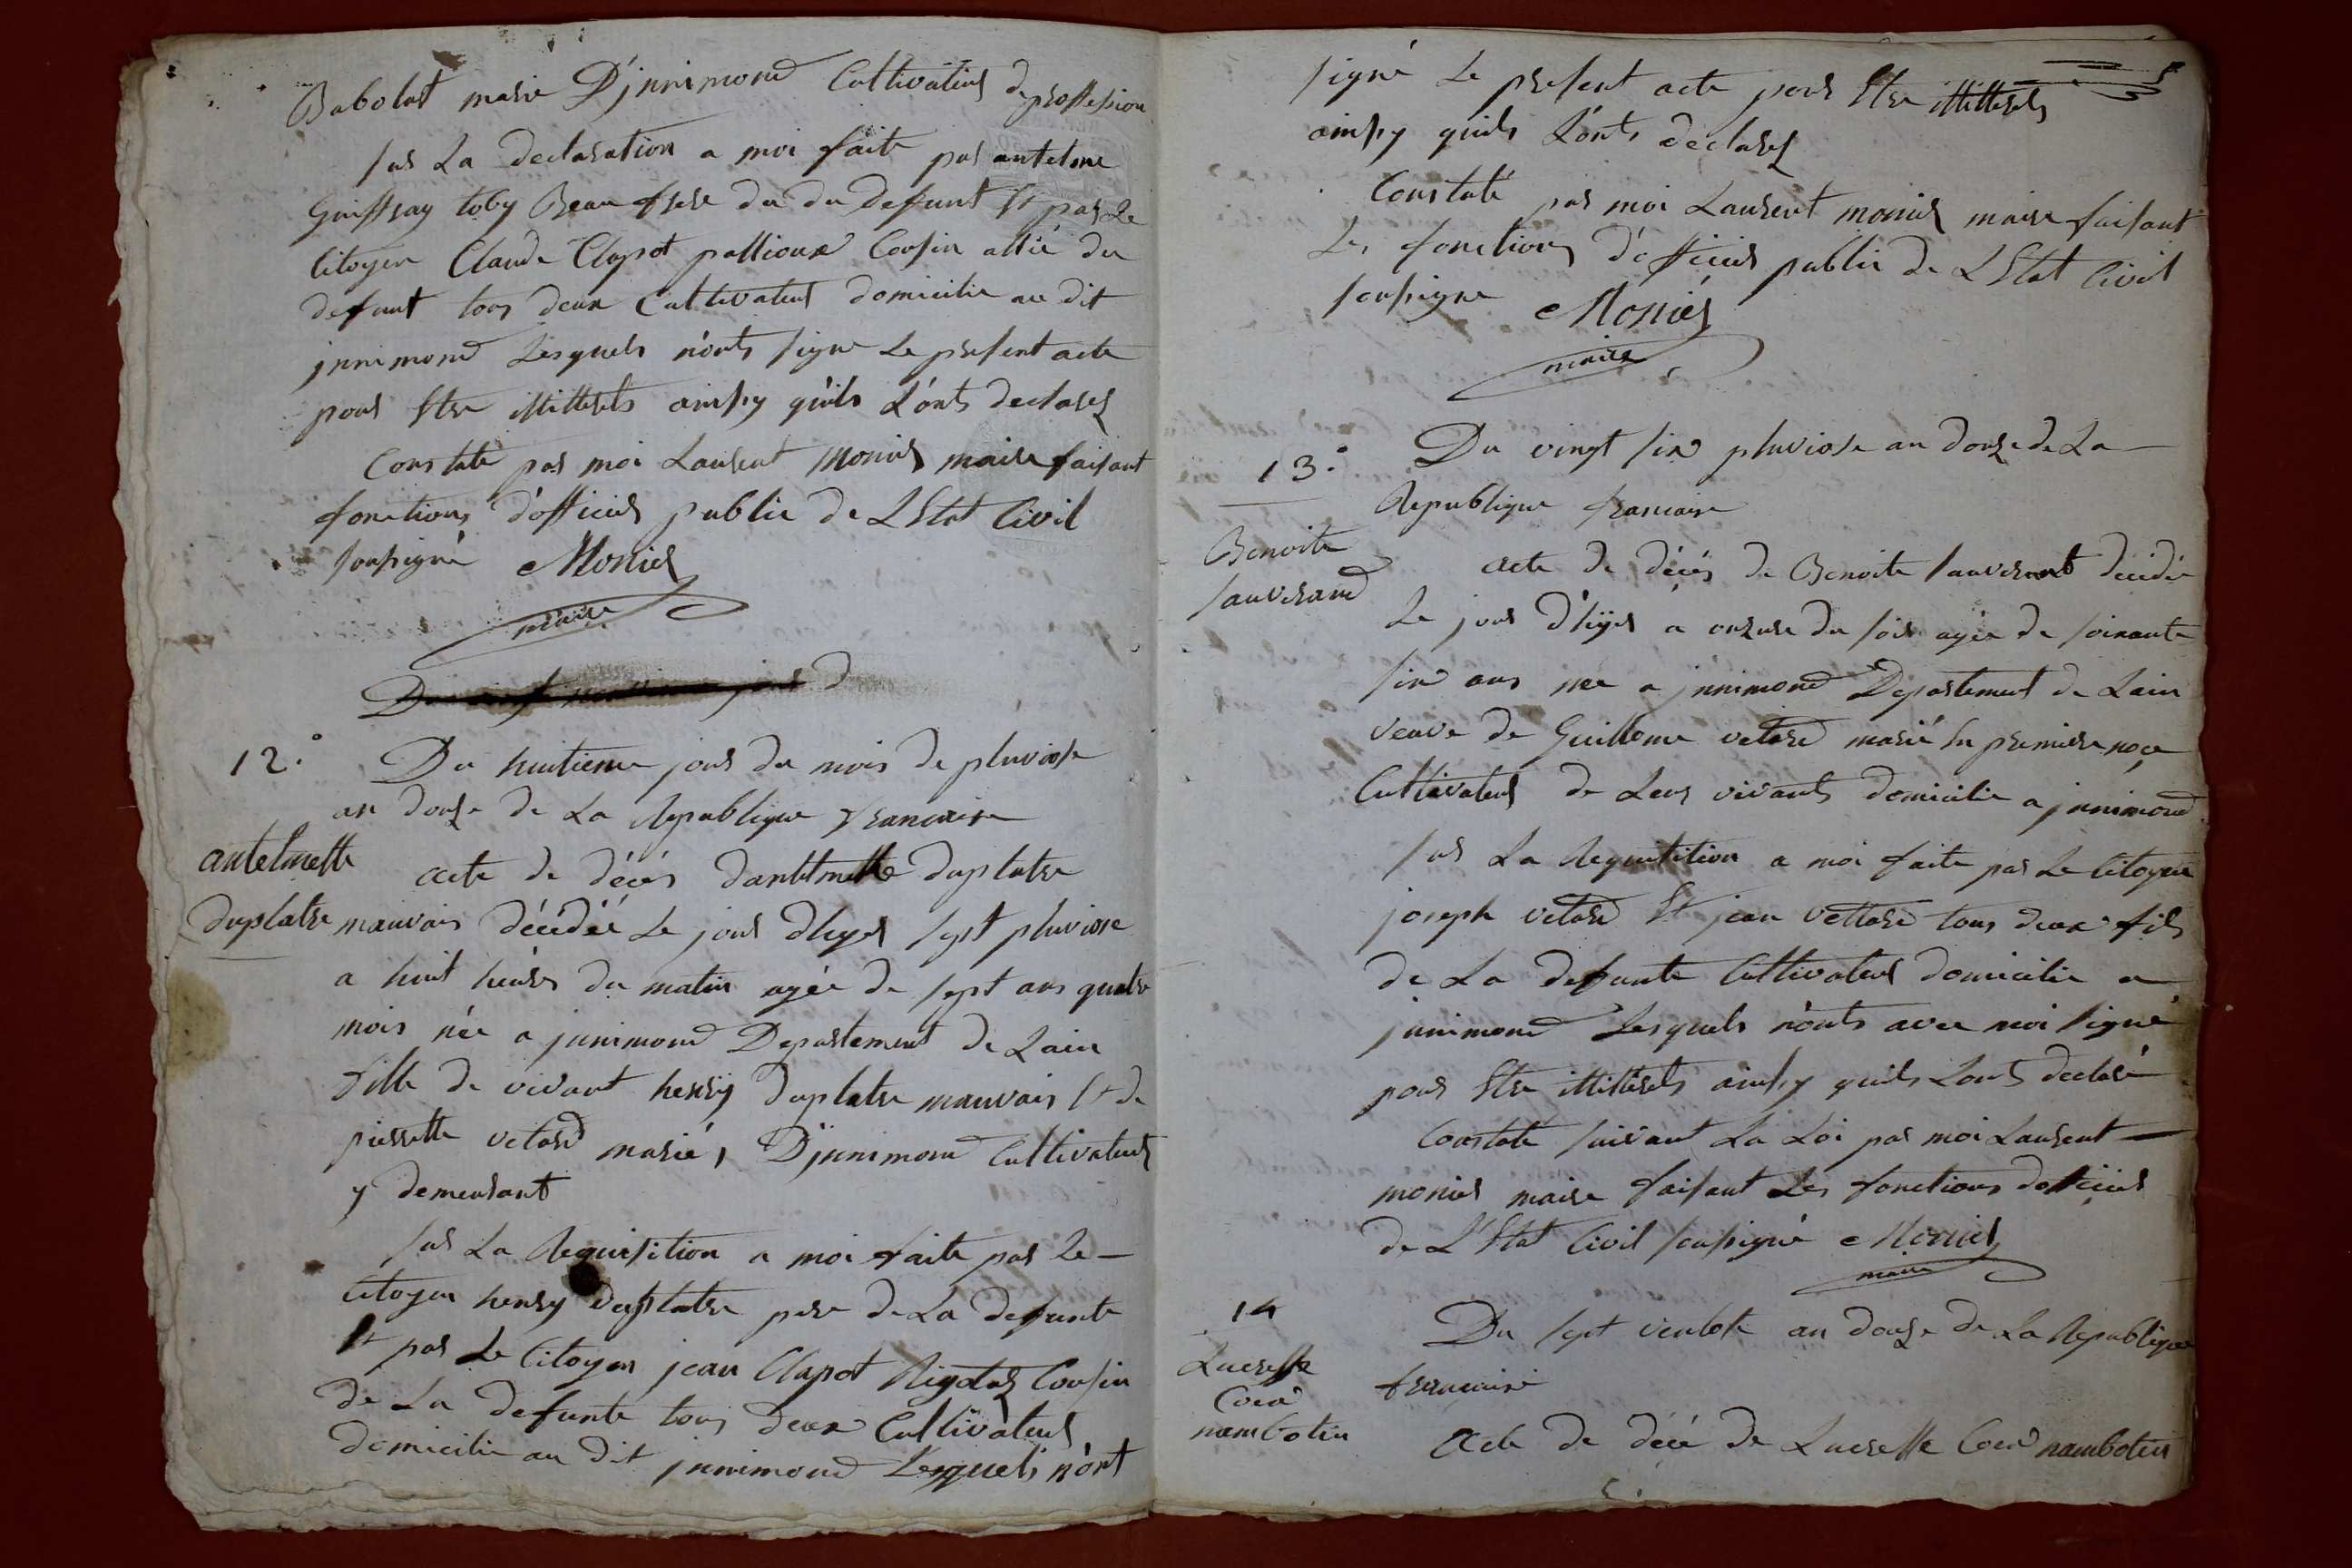 Babolat marié D'jnnimond Cultivateur de proffession
sur La declaration a moi faite par antelme
Guiffray toby Beau frere du du defunt Et par Le
Citoyen Claude Clapot pallioux Cousin allié du
defunt tous deux Cultivateur domicilie au dit
jnnimond Lesquels n'onts signe Le present acte
pour Etre illitterets ainsy qu'ils L'onts declarez
Constate par moi Laurent Monier maire faisant
fonctions d'officier public de L'Etat Civil
soussigné Monier
maire
12.°
Du huitieme jour du mois de pluviose
an douze de La Republique francaise
antelmette
duplatre
acte de décés dantelmette duplatre
mauvais décédéé Le jour dhyer sept pluviose
a huit heures du matin agée de sept ans quatre
mois née a jnnimond Departement de Lain
fille de vivant henry duplatre mauvais Et de
pierrette vetard mariés D'jnnimond Cultivateurs
y demeurant
sur La Requisition a moi faite par Le
Citoyen henry duplatre pere de La defunte
Et par Le Citoyen jean Clapot Rigotaz Cousin
de La defunte tous deux Cultivateurs
domicilie au dit jnnimond Lesquels n'ont
signé Le present acte pour Etre illitterets
ainsy quils L'onts declarez
Constaté par moi Laurent monier maire faisant
Les fonctions d'officier public de L'Etat Civil
soussigne Monier
maire
13.°
Du vingt six pluviose an douze de La
Republique francaise
Benoite
sauverand
acte de décés de Benoite sauverant décédée
Le jour d'hyer a onzure du soir agée de soixante
six ans née a jnnimond Departement de Lain
veuve de Guillome vetard marié En premiere noce
Cultivateur de Leur vivants domicilie a jnnimond
sur La Requisition a moi faite par Le Citoyen
joseph vetard Et jean vettard tous deux fils
de La defunte Cultivateur domicilie a
jnnimond Lesquels n'onts avec moi signé
pour Etre illiterets ainsy quils Lonts declaré
Constaté suivant La Loi par moi Laurent
monier maire faisant Les fonctions dofficier
de L'Etat Civil soussigné Monier
maire
14
Du sept ventose an douze de La Republique
francaise
Lucresse
Coux
nambotin
Acte de décé de Lucresse Coux nambotin